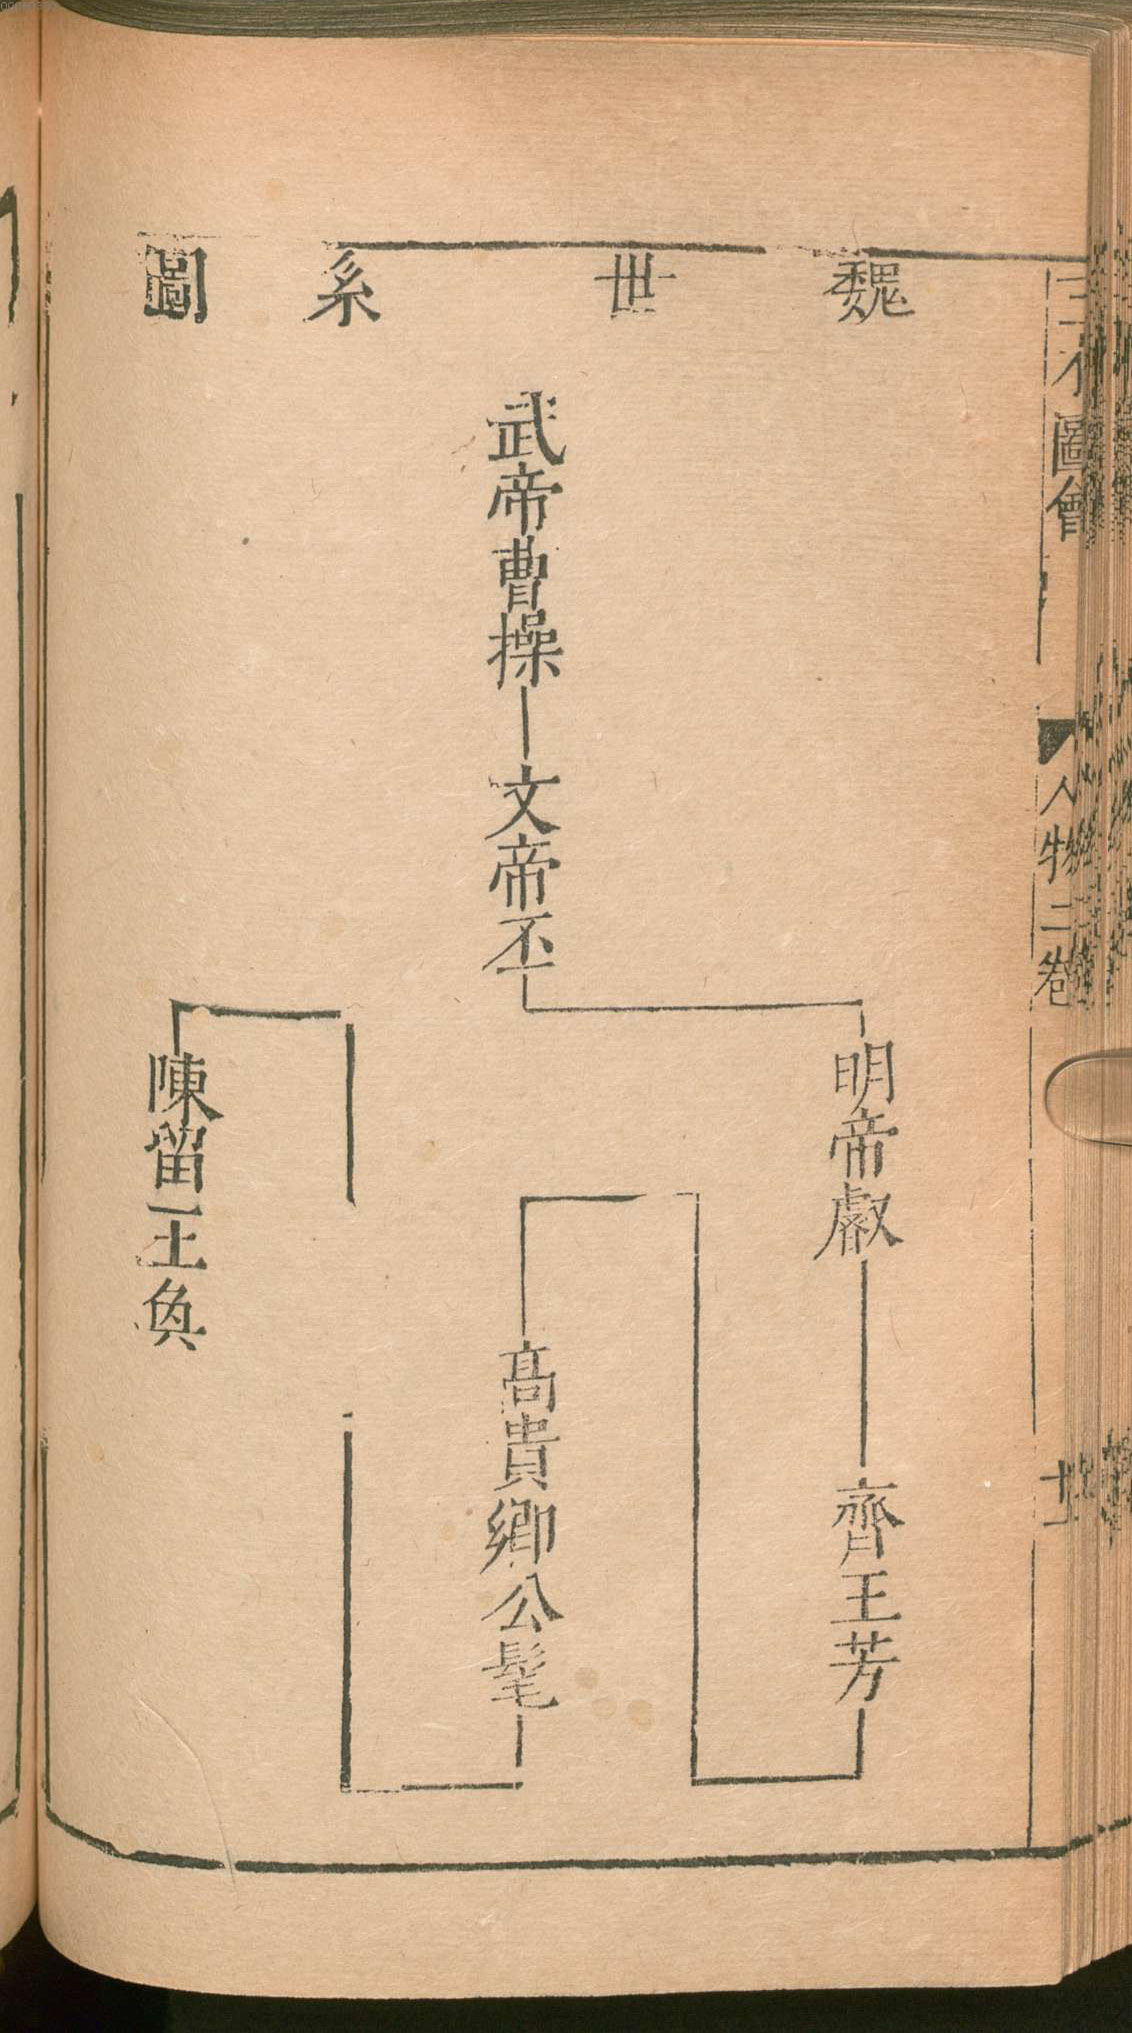 魏世系圖
武帝曹操
文帝丕
明帝叡
齊王芳
高貴鄉公髦
陳留王奐
三才圖會
人物二卷